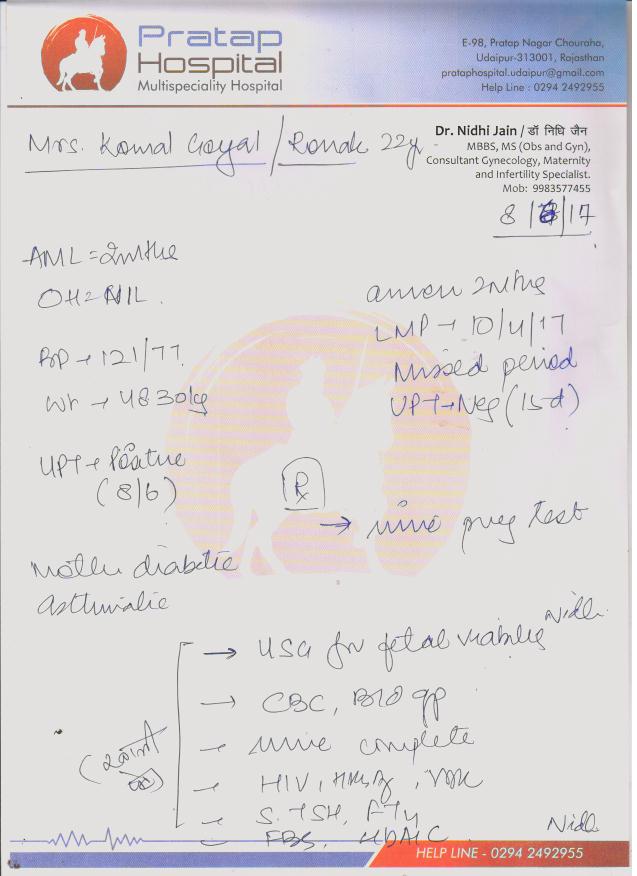 Pratap
Hospital
Multispeciality Hospital
E-98, Pratap Nagar Chouraha,
Udaipur-313001, Rajasthan
prataphospital.udaipur@gmail.com
Help Line : 0294 2492955
Dr. Nidhi Jain / डॉ निधि जैन
MBBS, MS (Obs and Gyn),
Consultant Gynecology, Maternity
and Infertility Specialist.
Mob: 9983577455
Mrs. Komal Goyal / Ronak 22y
8/6/17
AML =
OH = NIL.
BP → 121/77
Wt → 48.30kg
UPT → Positive
(8/6)
Mother diabetic
Asthmatic
LMP → 10/4/17
Missed period
UPT → Neg (15d)
Rx
→ urine preg test
Nidhi
→ USG for fetal viability
→ CBC, Bld gp
→ urine complete
→ HIV, HBsAg, VDRL
→ S. TSH,
→ FBS, HbA1C
Nidhi
HELP LINE - 0294 2492955